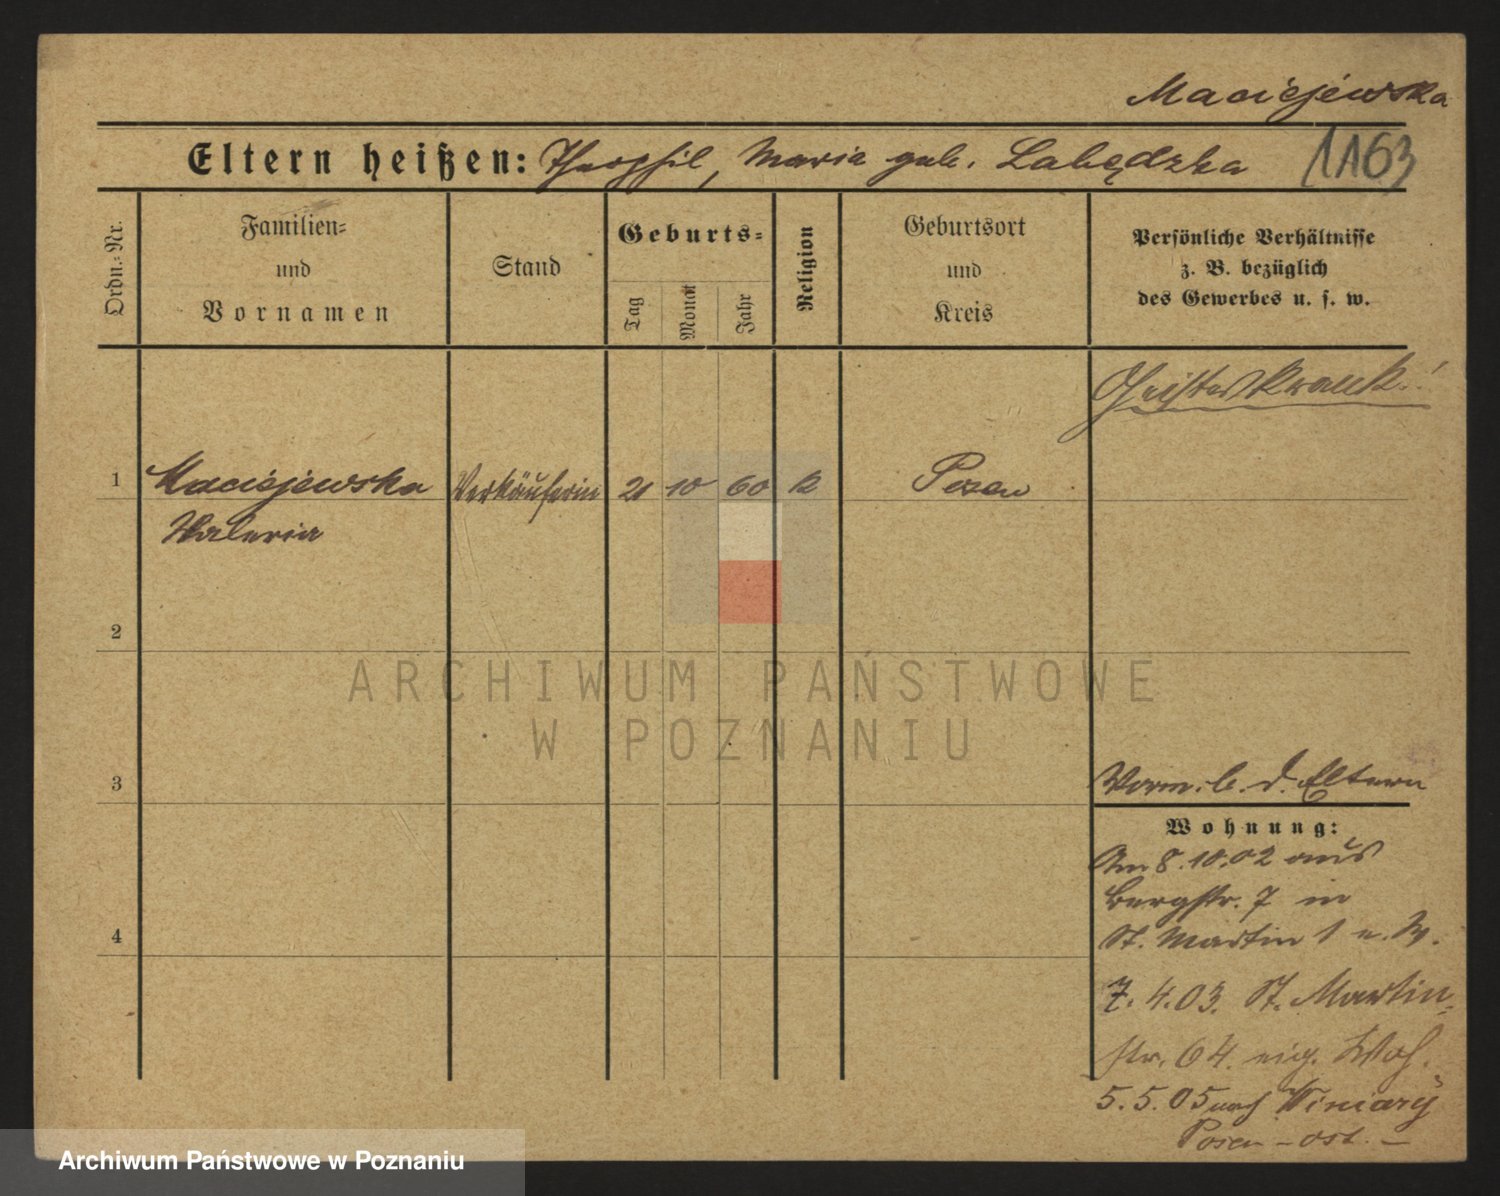 Maciejewska
Eltern heißen: Theophil, Maria geb. Labędzka
1163
Ordn.-Nr.
Familien-
und
Vornamen
Stand
Geburts-
Tag
Monat
Jahr
Religion
Geburtsort
und
Kreis
Persönliche Verhältnisse
z. B. bezüglich
des Gewerbes u. s. w.
Geisteskrank!
1 Maciejewska Verkäuferin 21 10 60 k Posen
Waleria
2
ARCHIWUM PAŃSTWOWE
W POZNANIU
3
Vorm. b. d. Eltern
Wohnung:
Am 8.10.02 aus
Bergstr. 7 in
St. Martin 1 u. W.
4
7.4.03. St. Martin-
str. 64 eig. Woh.
5.5.05 nach Winiary
Posen-Ost. -
Archiwum Państwowe w Poznaniu